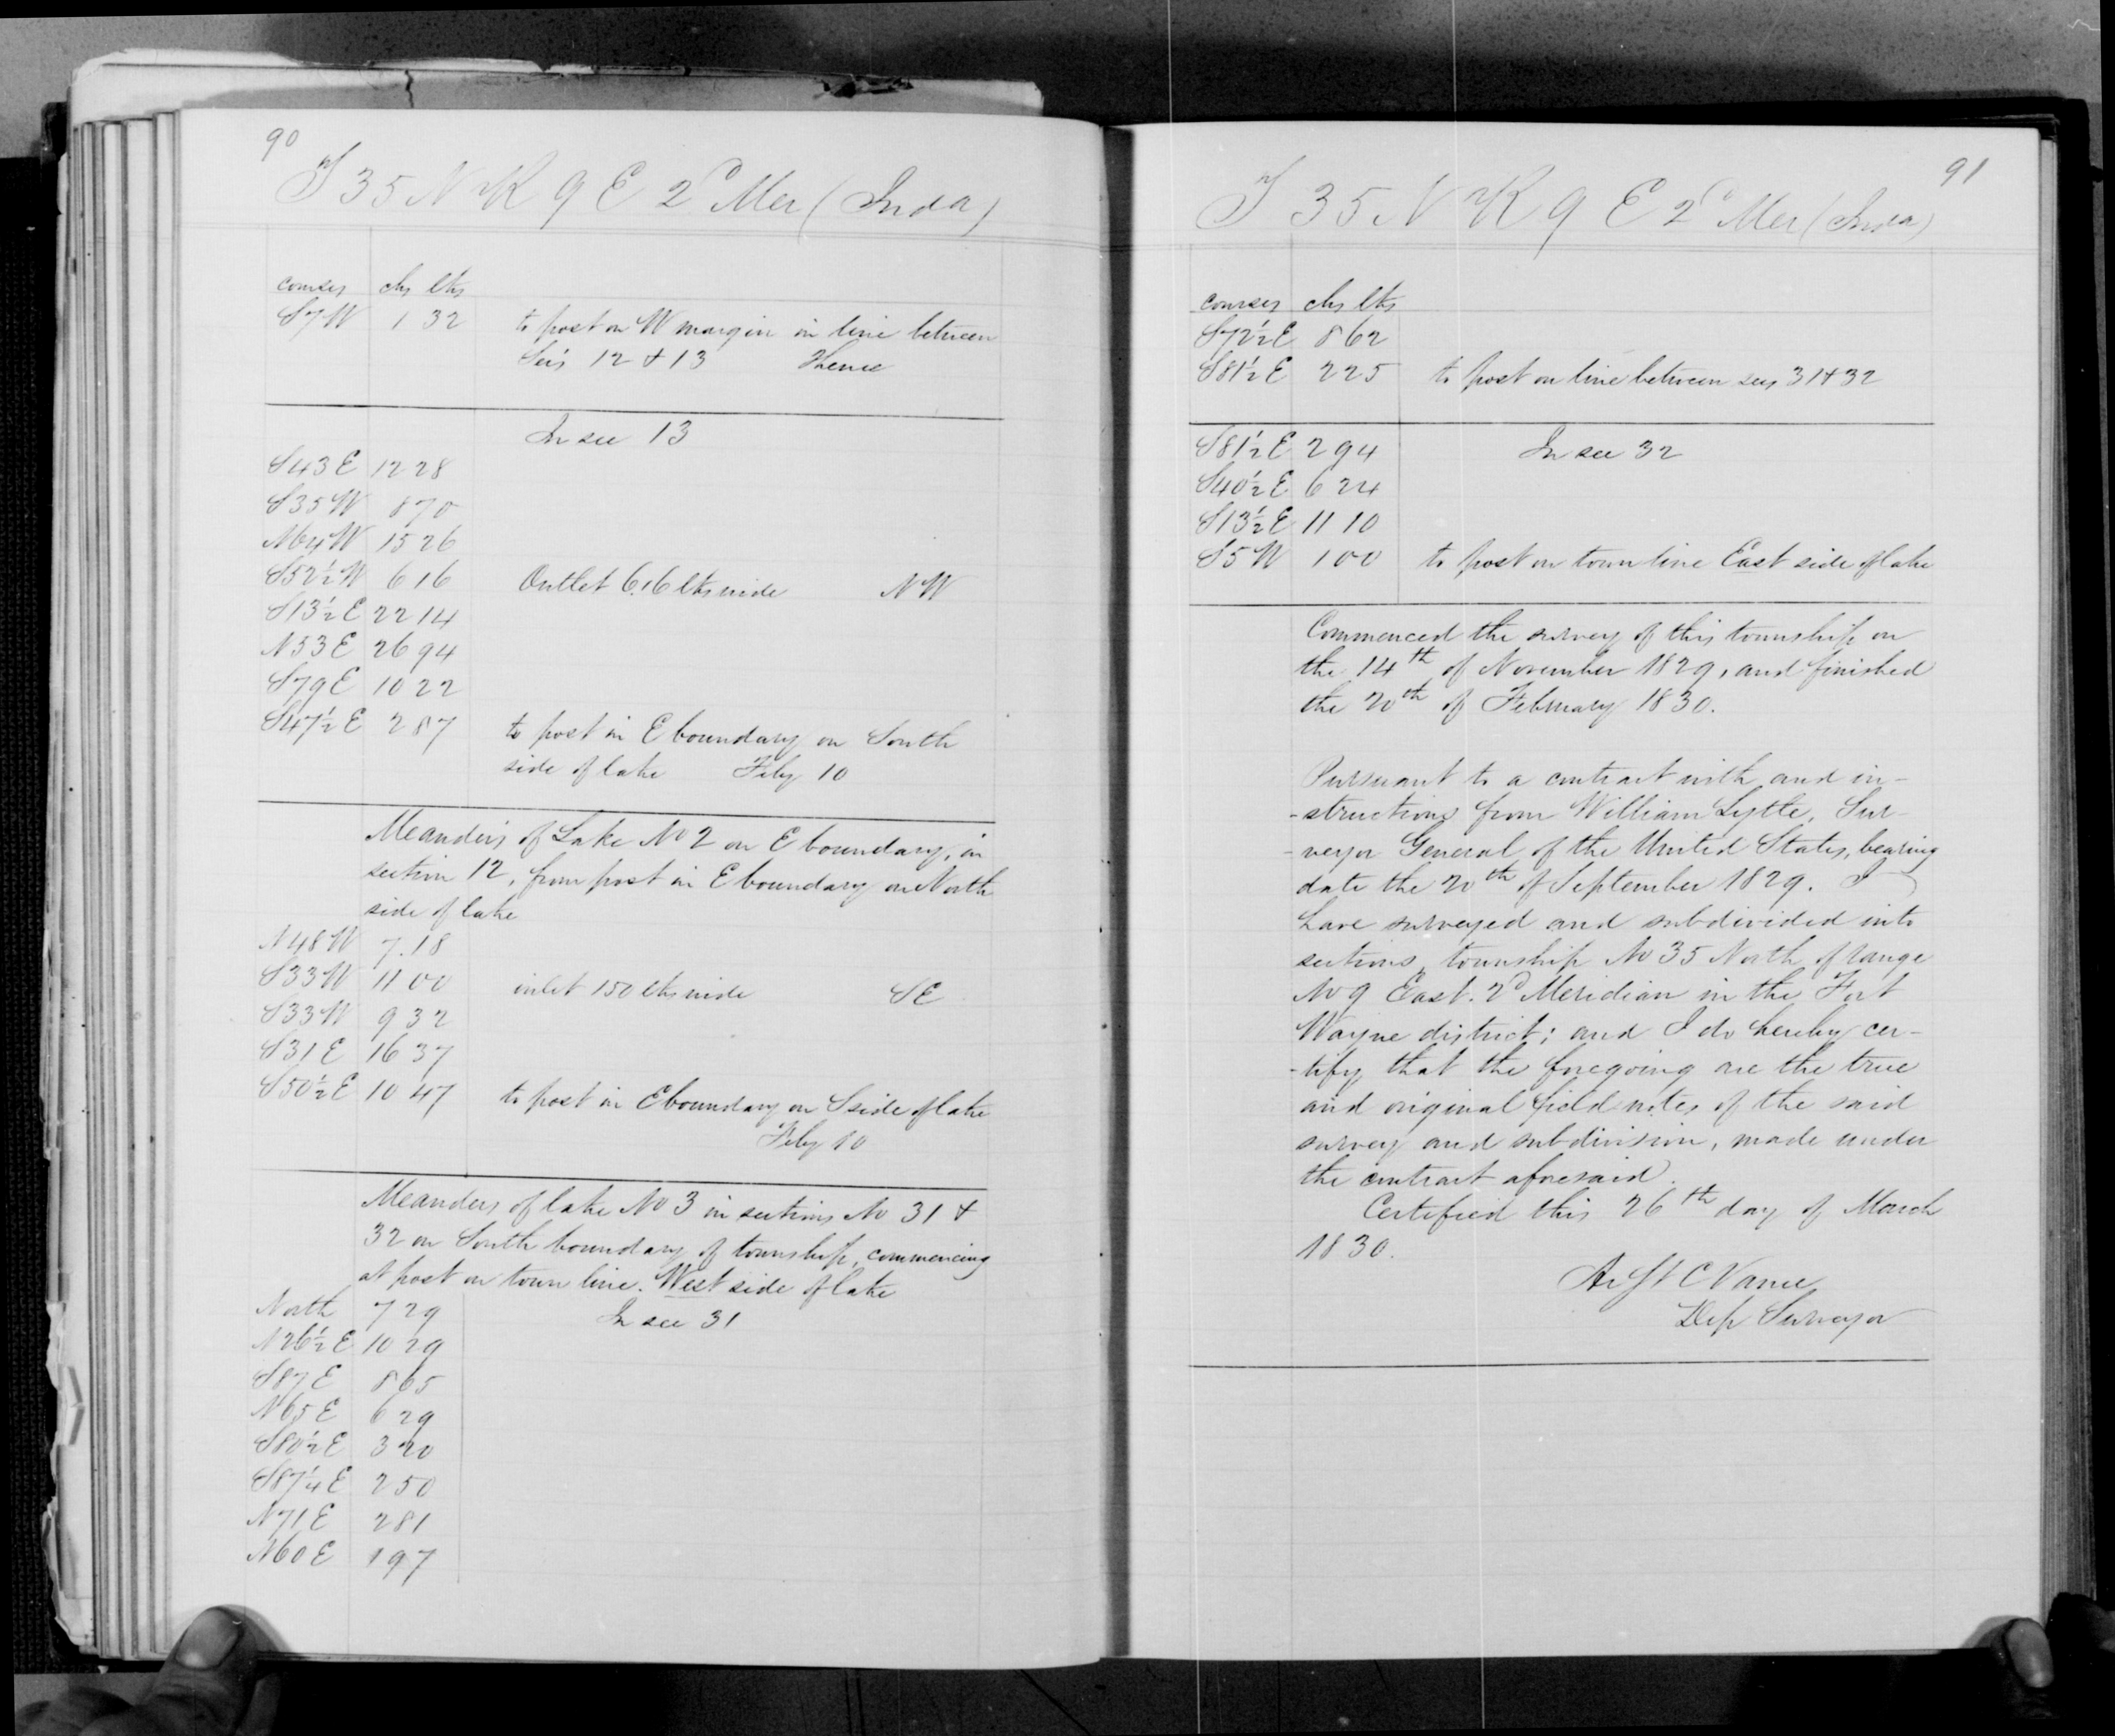 90
T 35 N R 9 E 2d Mer (Inda)
courses chs lks
S7W 1 32 to post on W margin in line between
Secs 12 & 13 Thence
In sec 13
S43E 12 28
S35W 8 70
N64W 15 26
S52½W 6 16 Outlet 6.16 lks wide NW
S13½E 22 14
N53E 26 94
S79E 10 22
S47½E 2 87 to post in E boundary on South
side of lake Feby 10
Meanders of Lake No 2 on E boundary, in
section 12, from post in E boundary on North
side of lake
N48W 7.18
S33W 11 00 inlet 150 lks wide SE
S33W 9 32
S31E 16 37
S50½E 10 47 to post in E boundary on S side of lake
Feby 10
Meanders of lake No 3 in sections No 31 &
32 on South boundary of township, commencing
at post on town line. West side of lake
North 7 29 In sec 31
N26½E 10 29
S87E 8 65
N65E 6 29
S80½E 3 20
S87¼E 2 50
N71E 2 81
N60E 1 97
91
T 35 N R 9 E 2d Mer (Inda)
courses chs lks
S72½E 8 62
S81½E 2 25 to post on line between secs 31 & 32
S81½E 2 94 In sec 32
S40½E 6 24
S13½E 11 10
S5W 1 00 to post on town line East side of lake
Commenced the survey of this township on
the 14th of November 1829, and finished
the 20th of February 1830.
Pursuant to a contract with, and in-
-structions from William Lytle, Sur-
-veyor General of the United States, bearing
date the 20th of September 1829. I
have surveyed and subdivided into
sections, township No 35 North, of range
No 9 East. 2d Meridian in the Fort
Wayne district; and I do hereby cer-
-tify that the foregoing are the true
and original field notes of the said
survey and subdivision, made under
the contract aforesaid.
Certified this 26th day of March
1830.
Ar St C Vance
Dep Surveyor